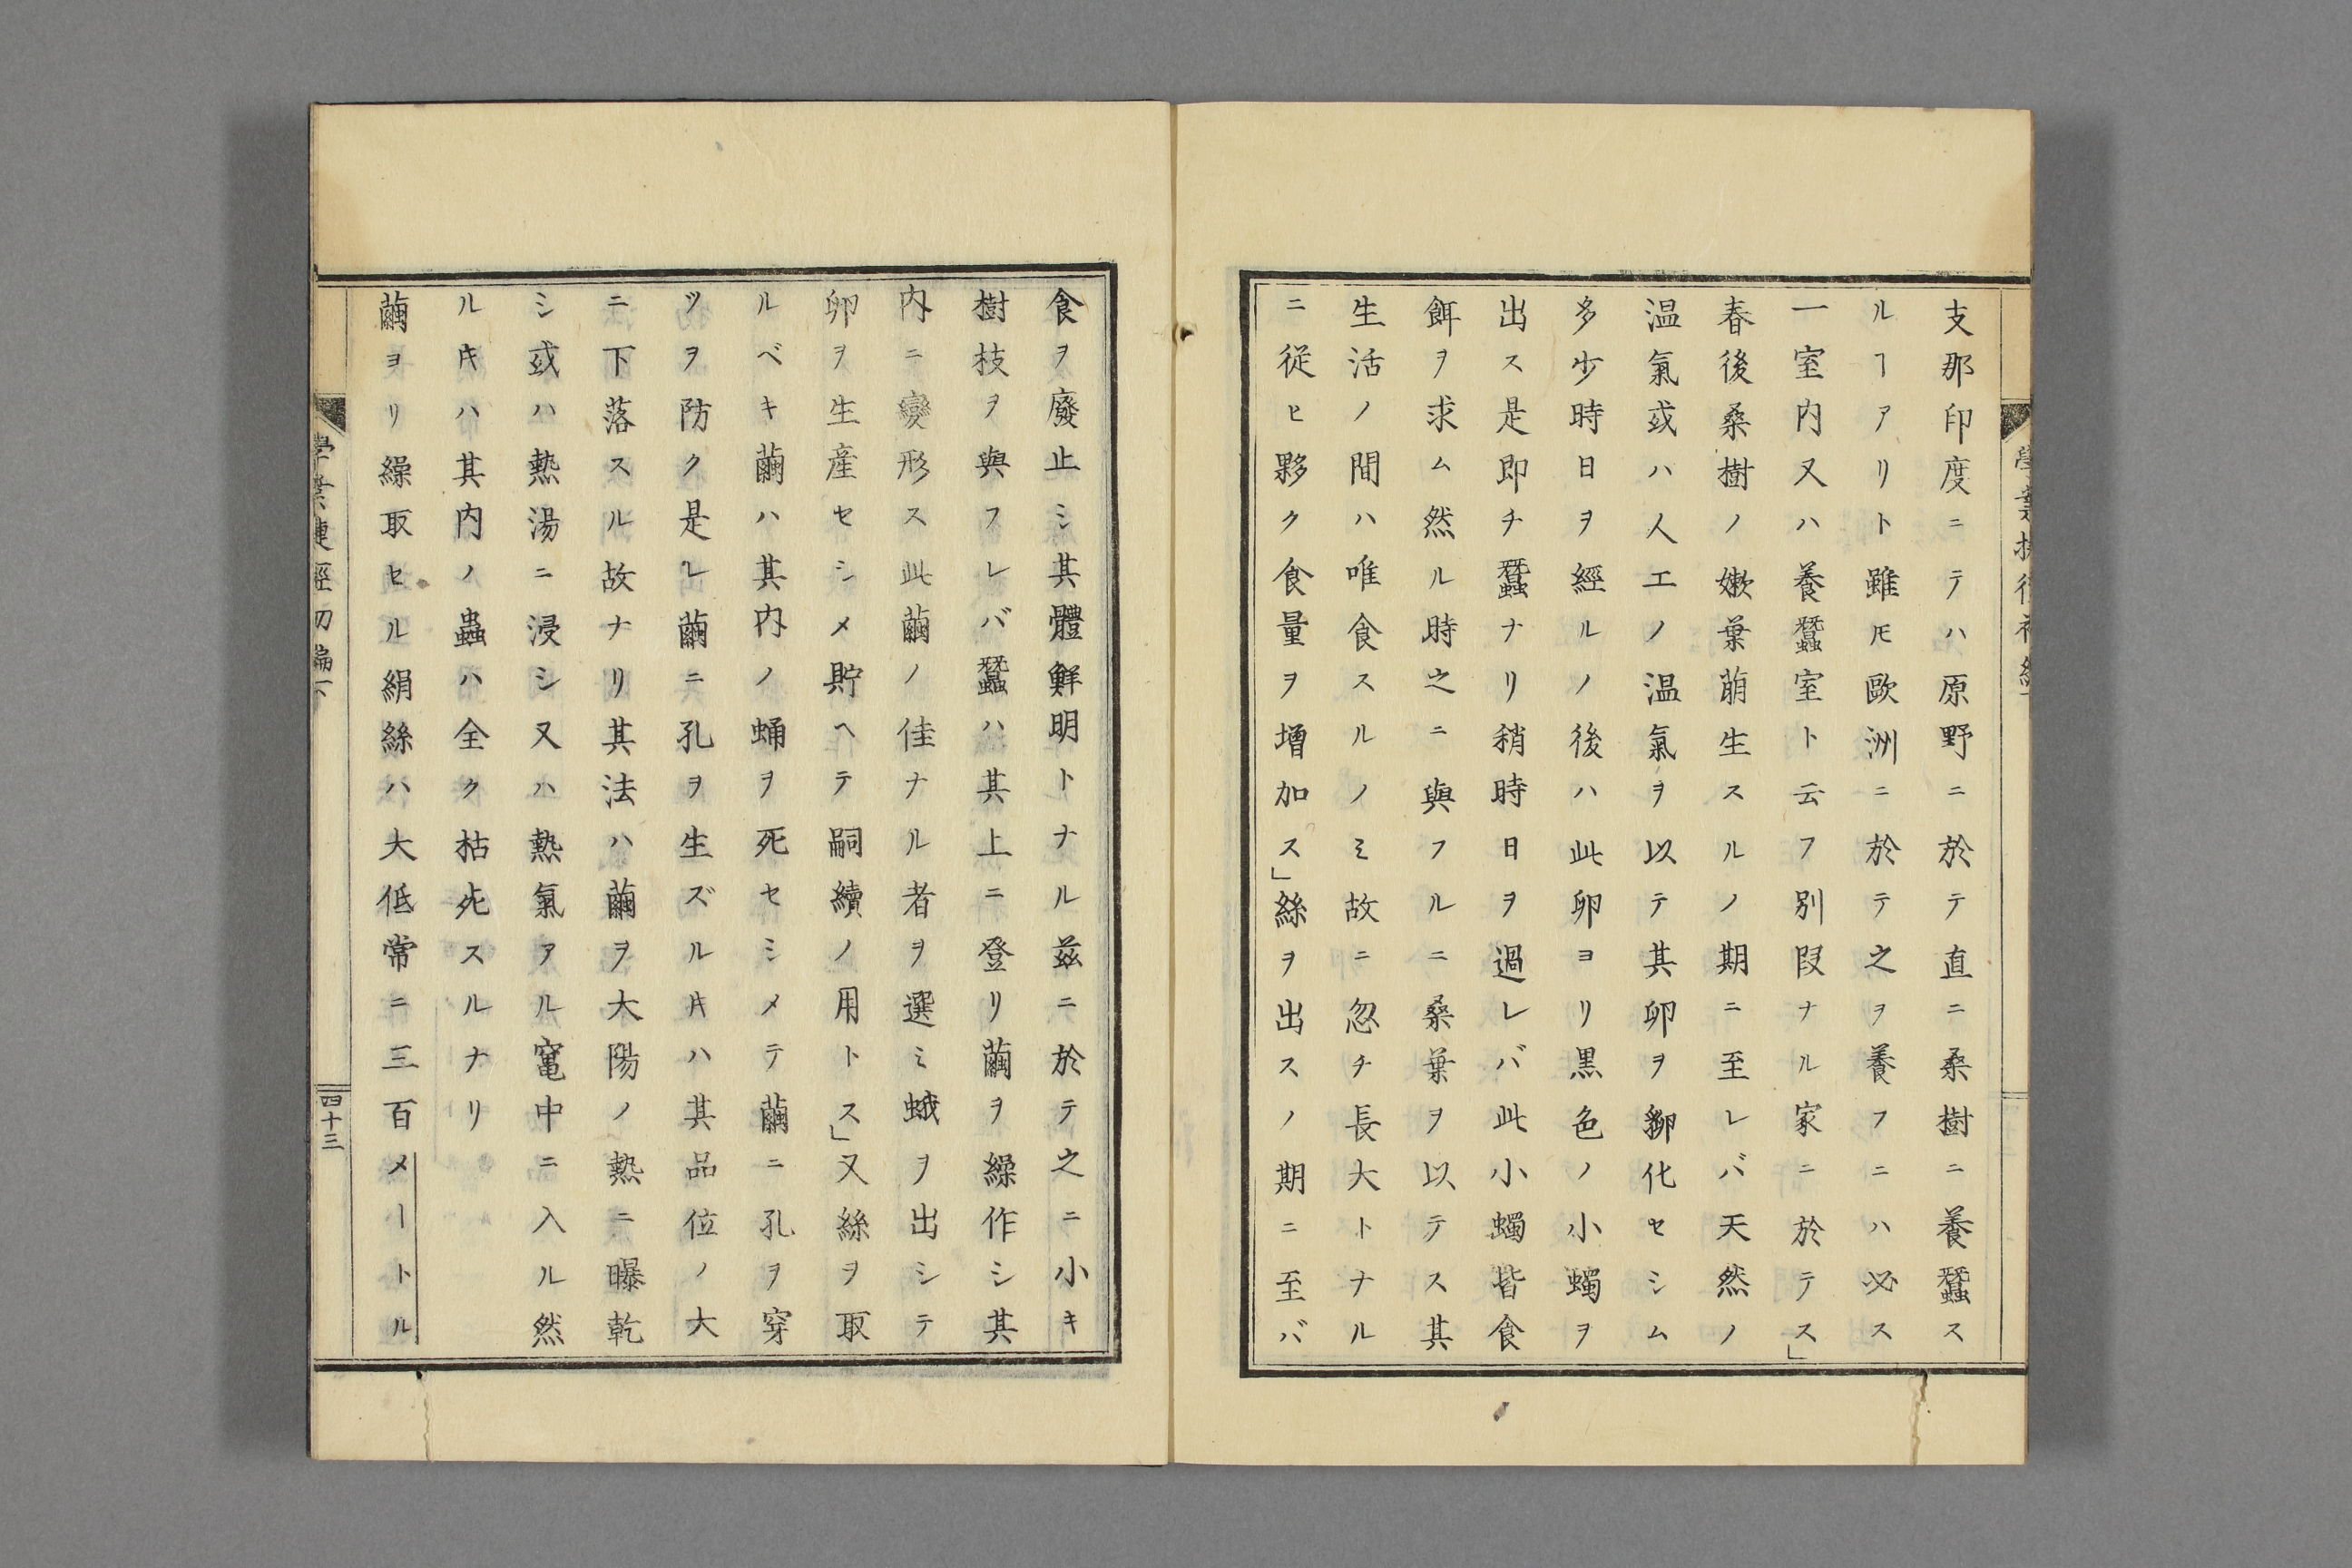 支那印度ニテハ原野ニ於テ直ニ桑樹ニ養蠶ス
ルヿアリト雖モ歐洲ニ於テ之ヲ養フニハ必ス
一室内又ハ養蠶室ト云フ別段ナル家ニ於テス」
春後桑樹ノ嫩葉萠生スルノ期ニ至レバ天然ノ
温氣或ハ人工ノ温氣ヲ以テ其卵ヲ孵化セシム
多少時日ヲ經ルノ後ハ此卵ヨリ黒色ノ小蠋ヲ
出ス是即チ蠶ナリ稍時日ヲ過レバ此小蠋皆食
餌ヲ求ム然ル時之ニ與フルニ桑葉ヲ以テス其
生活ノ間ハ唯食スルノミ故ニ忽チ長大トナル
ニ從ヒ夥ク食量ヲ増加ス」絲ヲ出スノ期ニ至バ
食ヲ廢止シ其體鮮明トナル茲ニ於テ之ニ小キ
樹枝ヲ與フレバ蠶ハ其上ニ登リ繭ヲ繰作シ其
内ニ變形ス此繭ノ佳ナル者ヲ選ミ蛾ヲ出シテ
卵ヲ生産セシメ貯ヘテ嗣續ノ用トス」又絲ヲ取
ルベキ繭ハ其内ノ蛹ヲ死セシメテ繭ニ孔ヲ穿
ツヲ防ク是レ繭ニ孔ヲ生ズル𪜈ハ其品位ノ大
ニ下落スル故ナリ其法ハ繭ヲ大陽ノ熱ニ曝乾
シ或ハ熱湯ニ浸シ又ハ熱氣アル竃中ニ入ル然
ルキハ其内ノ蟲ハ全ク枯死スルナリ
繭ヨリ繰取セル絹絲ハ大低常ニ三百メートル
四十三